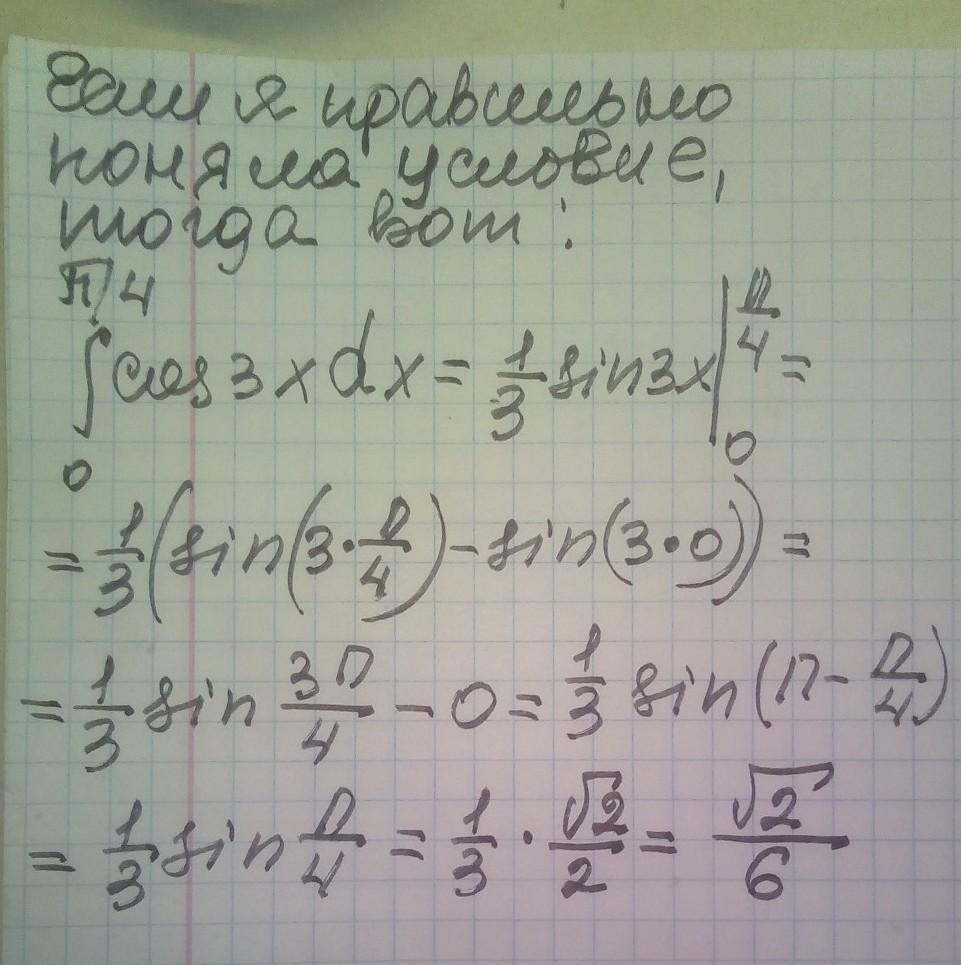 Если я правильно
поняла условие,
тогда вот:
π/4
∫ cos 3x dx = 1/3 sin 3x | π/4 =
0 0
= 1/3 (sin(3·π/4) - sin(3·0)) =
= 1/3 sin 3π/4 - 0 = 1/3 sin(π - π/4)
= 1/3 sin π/4 = 1/3 · √2/2 = √2/6